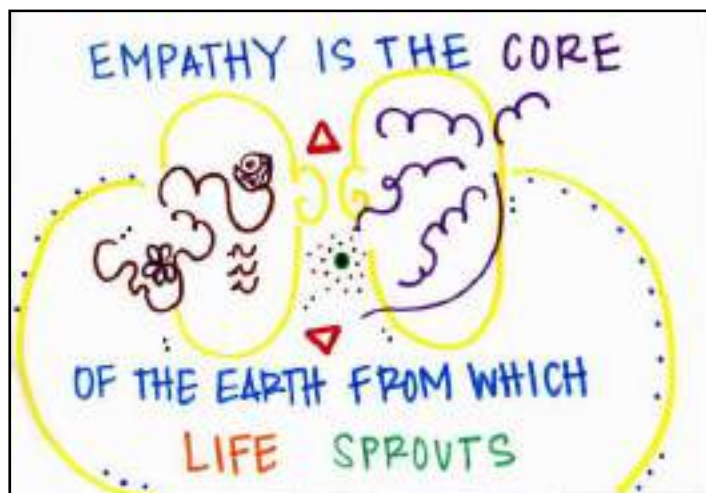 EMPATHY IS THE CORE
OF THE EARTH FROM WHICH
LIFE SPROUTS